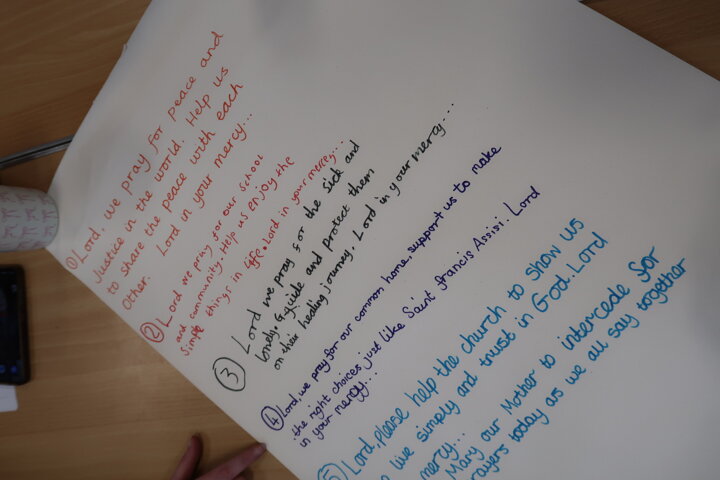 ① Lord, we pray for peace and
Justice in the world. Help us
to share the peace with each
Other. Lord in your mercy...
② Lord we pray for our school
and community. Help us enjoy the
simple things in life. Lord in your mercy...
③ Lord we pray for the sick and
lonely, guide and protect them
on their healing journey. Lord in your mercy...
④ Lord, we pray for our common home, support us to make
the right choices just like Saint francis Assisi. Lord
in your mercy...
⑤ Lord, please help the church to show us
to live simply and trust in God. Lord
mercy...
Mary our Mother to intercede for
prayers today as we all say together